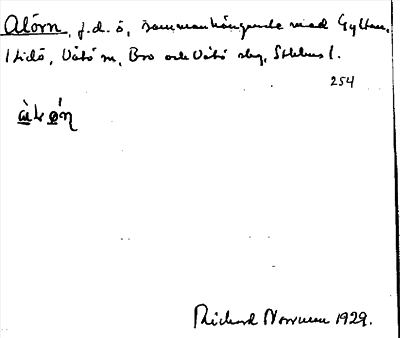 Alörn, f.d. ö, sammanhängande med Gyltan,
Lidö, Vätö sn, Bro och Vätö skg, Sthlms l.
254
Richard Norrman 1929.